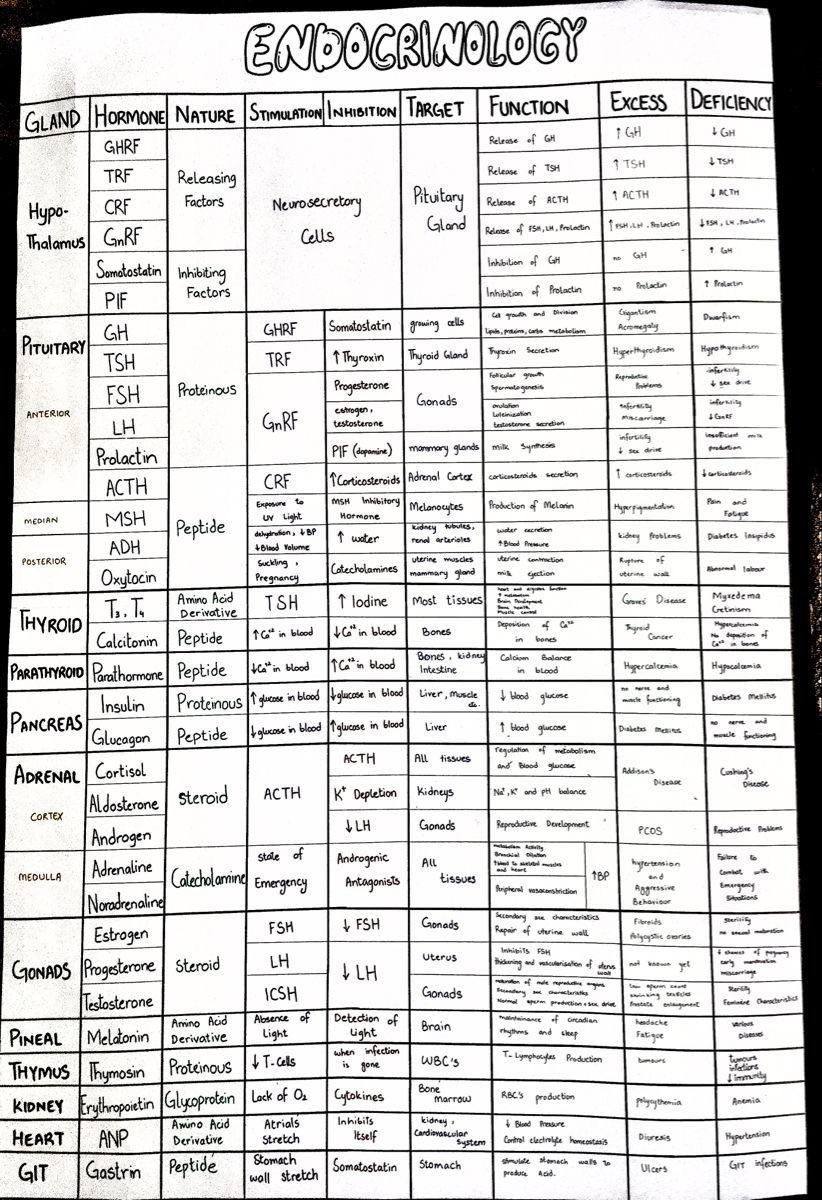 ENDOCRINOLOGY
GLAND HORMONE NATURE STIMULATION INHIBITION TARGET FUNCTION EXCESS DEFICIENCY
Hypo-
Thalamus
GHRF
TRF
CRF
GnRF
Somatostatin
PIF
Releasing
Factors
Inhibiting
Factors
Neurosecretory
Cells
Pituitary
Gland
Release of GH ↑ GH ↓ GH
Release of TSH ↑ TSH ↓ TSH
Release of ACTH ↑ ACTH ↓ ACTH
Release of FSH, LH, Prolactin ↑ FSH, LH, Prolactin ↓ FSH, LH, Prolactin
Inhibition of GH no GH ↑ GH
Inhibition of Prolactin no Prolactin ↑ Prolactin
PITUITARY
ANTERIOR
MEDIAN
POSTERIOR
Proteinous
Peptide
GH GHRF Somatostatin growing cells
Cell growth and Division
lipids, proteins, carbs metabolism
Gigantism
Acromegaly
Dwarfism
TSH TRF ↑ Thyroxin Thyroid Gland Thyroxin Secretion Hyperthyroidism Hypothyroidism
FSH
GnRF
Progesterone
Gonads
Follicular growth
Spermatogenesis
Reproductive
Problems
infertility
↓ sex drive
LH
estrogen,
testosterone
ovulation
Luteinization
testosterone secretion
infertility
miscarriage
infertility
↓ GnRF
Prolactin PIF (dopamine) mammary glands milk Synthesis
infertility
↓ sex drive
insufficient milk
production
ACTH CRF ↑Corticosteroids Adrenal Cortex corticosteroids secretion ↑ corticosteroids ↓ corticosteroids
MSH
Exposure to
UV Light
MSH Inhibitory
Hormone
Melanocytes Production of Melanin Hyperpigmentation
Pain and
Fatigue
ADH
dehydration, ↓ BP
↓ Blood Volume
↑ water
kidney tubules,
renal arterioles
water excretion
↑Blood Pressure
kidney Problems Diabetes Insipidus
Oxytocin
Suckling,
Pregnancy
Catecholamines
uterine muscles
mammary gland
uterine contraction
milk ejection
Rupture of
uterine wall
Abnormal labour
THYROID
T3, T4
Amino Acid
Derivative
TSH ↑ Iodine Most tissues
↑ metabolism
Brain Development
Bone health
Muscle control
Graves' Disease
Myxedema
Cretinism
Calcitonin Peptide ↑Ca+2 in blood ↓Ca+2 in blood Bones
Deposition of Ca+2
in bones
Thyroid
Cancer
Hypercalcemia
No deposition of
Ca+2 in bones
PARATHYROID Parathormone Peptide ↓Ca+2 in blood ↑Ca+2 in blood
Bones, kidney
Intestine
Calcium Balance
in blood
Hypercalcemia Hypocalcemia
PANCREAS
Insulin Proteinous ↑ glucose in blood ↓glucose in blood
Liver, Muscle
etc.
↓ blood glucose
no nerve and
muscle functioning
Diabetes Mellitus
Glucagon Peptide ↓ glucose in blood ↑glucose in blood Liver ↑ blood glucose Diabetes Mellitus
no nerve and
muscle functioning
ADRENAL
CORTEX
MEDULLA
Steroid
ACTH
Cortisol ACTH All tissues
regulation of metabolism
and Blood glucose
Addison's
Disease
Cushing's
Disease
Aldosterone K+ Depletion Kidneys Na+, K+ and pH balance
Androgen ↓ LH Gonads Reproductive Development PCOS Reproductive Problems
Adrenaline
Noradrenaline
Catecholamine
state of
Emergency
Androgenic
Antagonists
All
tissues
metabolism Activity
Bronchial Dilation
↑blood to skeletal muscles
and heart
Peripheral vasoconstriction
↑BP
hypertension
and
Aggressive
Behaviour
Failure to
Combat with
Emergency
Situations
GONADS
Steroid
Estrogen FSH ↓ FSH Gonads
Secondary sex characteristics
Repair of uterine wall
Fibroids
Polycystic ovaries
Sterility
no sexual maturation
Progesterone LH ↓ LH Uterus
Inhibits FSH
thickening and vascularisation of uterus
wall
not known yet
↓ chances of pregnancy
early menstruation
miscarriage
Testosterone ICSH Gonads
maturation of male reproductive organs
Secondary sex characteristics
Normal sperm production + sex drive
Low sperm count
shrinking testicles
Prostate enlargement
Sterility
Feminine Characteristics
PINEAL Melatonin
Amino Acid
Derivative
Absence of
Light
Detection of
Light
Brain
maintainance of circadian
rhythms and sleep
headache
Fatigue
Various
Diseases
THYMUS Thymosin Proteinous ↓ T-Cells
when infection
is gone
WBC's T-Lymphocytes Production tumours
tumours
infections
↓ immunity
KIDNEY Erythropoietin Glycoprotein Lack of O2 Cytokines
Bone
marrow
RBC's production Polycythemia Anemia
HEART ANP
Amino Acid
Derivative
Atrials
Stretch
Inhibits
Itself
kidney,
Cardiovascular
System
↓ Blood Pressure
Control electrolyte homeostasis
Diuresis Hypertension
GIT Gastrin Peptide
Stomach
wall stretch
Somatostatin Stomach
stimulate stomach walls to
produce Acid.
Ulcers GIT infections